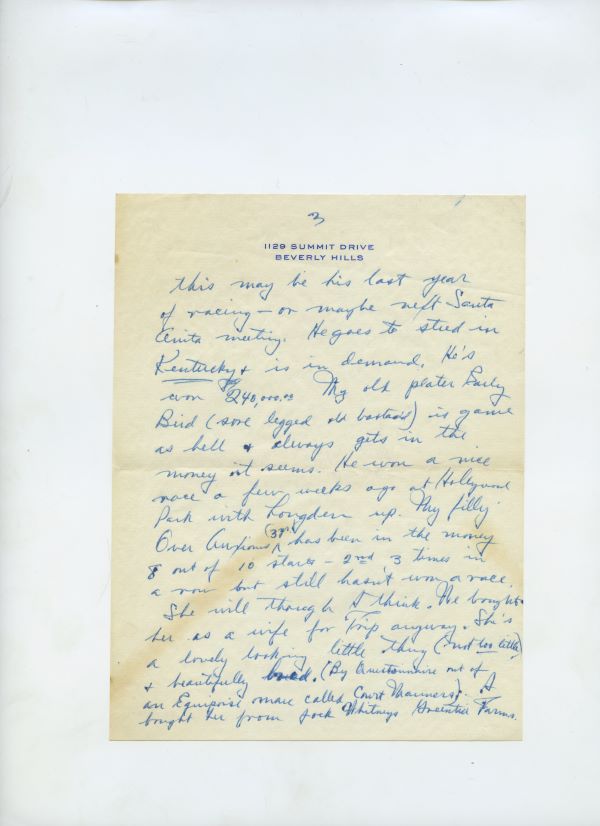 3
1129 SUMMIT DRIVE
BEVERLY HILLS
this may be his last year
of racing — or maybe next Santa
Anita meeting. He goes to stud in
Kentucky & is in demand. He's
won $240,000.00 My old plater Early
Bird (sore legged old bastard) is game
as hell & always gets in the
money it seems. He won a nice
race a few weeks ago at Hollywood
Park with Longden up. My filly
Over Anxious (3yr) has been in the money
8 out of 10 starts — 2nd 3 times in
a row but still hasn't won a race.
She will though I think. We bought
her as a wife for Trip anyway. She's
a lovely looking little thing (not too little)
& beautifully bred. (By Questionnaire out of
an Equipoise mare called Court Manners). I
bought her from Jock Whitneys Greentree Farms.